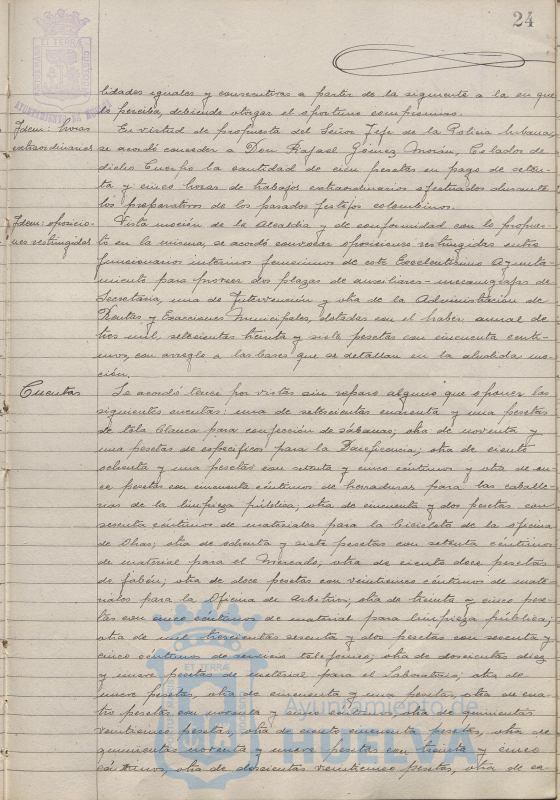 24
lidades iguales y consecutivas a partir de la siguiente a la en que
lo perciba, debiendo otorgar el oportuno compromiso.
Idem: horas extraordinarias
En virtud de propuesta del Señor Jefe de la Policia Urbana,
se acordó conceder a Don Rafael Gómez Morón, Celador de
dicho Cuerpo la cantidad de cien pesetas en pago de seten-
ta y cinco horas de trabajos extraordinarios efectuados durante
los preparativos de los pasados festejos colombinos.
Idem: oposicio-
nes restringidas
Vista moción de la Alcaldia y de conformidad con lo propues-
to en la misma, se acordó convocar oposiciones restringidas entre
funcionarios interinos femeninos de este Excelentísimo Ayunta-
miento para proveer dos plazas de auxiliares-mecanógrafas de
Secretaria, una de Intervención y otra de la Administración de
Rentas y Exacciones Municipales, dotadas con el haber anual de
tres mil, setecientas treinta y siete pesetas con cincuenta centi-
mos, con arreglo a las bases que se detallan en la aludida mo-
ción.
Cuentas
Se acordó tener por vistas sin reparo alguno que oponer las
siguientes cuentas: una de setecientas cuarenta y una pesetas
de tela blanca para confección de sábanas; otra de noventa y
una pesetas de especificos para la Beneficencia; otra de ciento
ochenta y una pesetas con setenta y cinco céntimos y otra de on-
ce pesetas con cincuenta céntimos de herraduras para las caballe-
rias de la limpieza pública; otra de cincuenta y dos pesetas con
sesenta céntimos de materiales para la bicicleta de la oficina
de Obras; otra de ochenta y siete pesetas con setenta céntimos
de material para el Mercado, otra de ciento doce pesetas
de jabón; otra de doce pesetas con veinticinco céntimos de mate-
riales para la Oficina de Arbitrios; otra de treinta y cinco pese-
tas con cinco céntimos de material para limpieza pública;
otra de mil trescientas sesenta y dos pesetas con sesenta y
cinco céntimos de servicio telefónico; otra de doscientas diez
y nueve pesetas de material para el Laboratorio; otra de
nueve pesetas, otra de cincuenta y una pesetas, otra de cua-
tro pesetas con noventa y cinco céntimos, otra de quinientas
veinticinco pesetas, otra de ciento cincuenta pesetas, otra de
quinientas noventa y nueve pesetas con treinta y cinco
céntimos, otra de doscientas veinticinco pesetas, otra de ca-
Ayuntamiento de
HUELVA